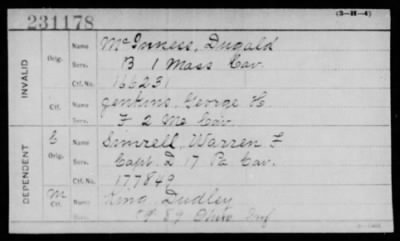 231178
(3-H-4)
INVALID
Orig.
Name McInness, Dugald
Serv. B 1 Mass Cav.
Ctf. No. 166231
Ctf.
Name Jenkins, George H.
Serv. F 2 Me Cav.
DEPENDENT
C
Orig.
Name Simrell, Warren F
Serv. Capt. I 17 Pa Cav.
Ctf. No. 177849
M
Ctf.
Name King, Dudley
Serv. 89 Ohio Inf